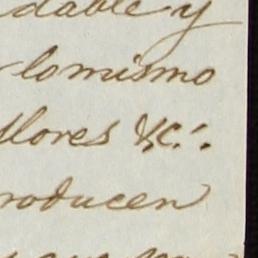 dable y
lo mismo
flores &c.ª.
roducen